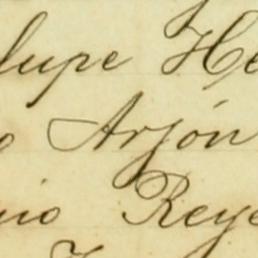 lupe He
o Arjón
nio Reye